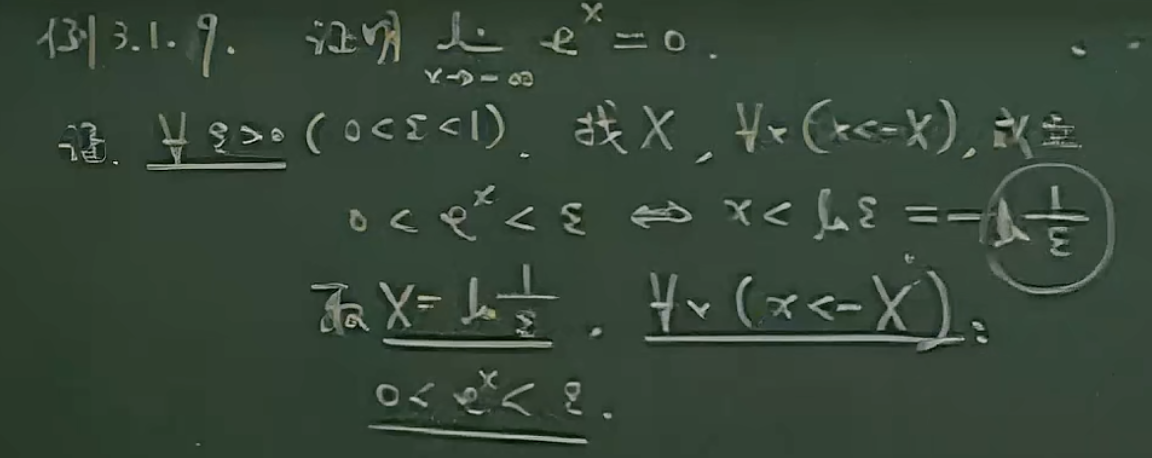 例3.1.9. 证明 lim_{x→-∞} e^x = 0.
证. ∀ε>0 (0<ε<1). 找X, ∀x(x<-X),
0 < e^x < ε ⇔ x < ln ε = -ln 1/ε
取 X = ln 1/ε. ∀x (x<-X):
0 < e^x < ε.